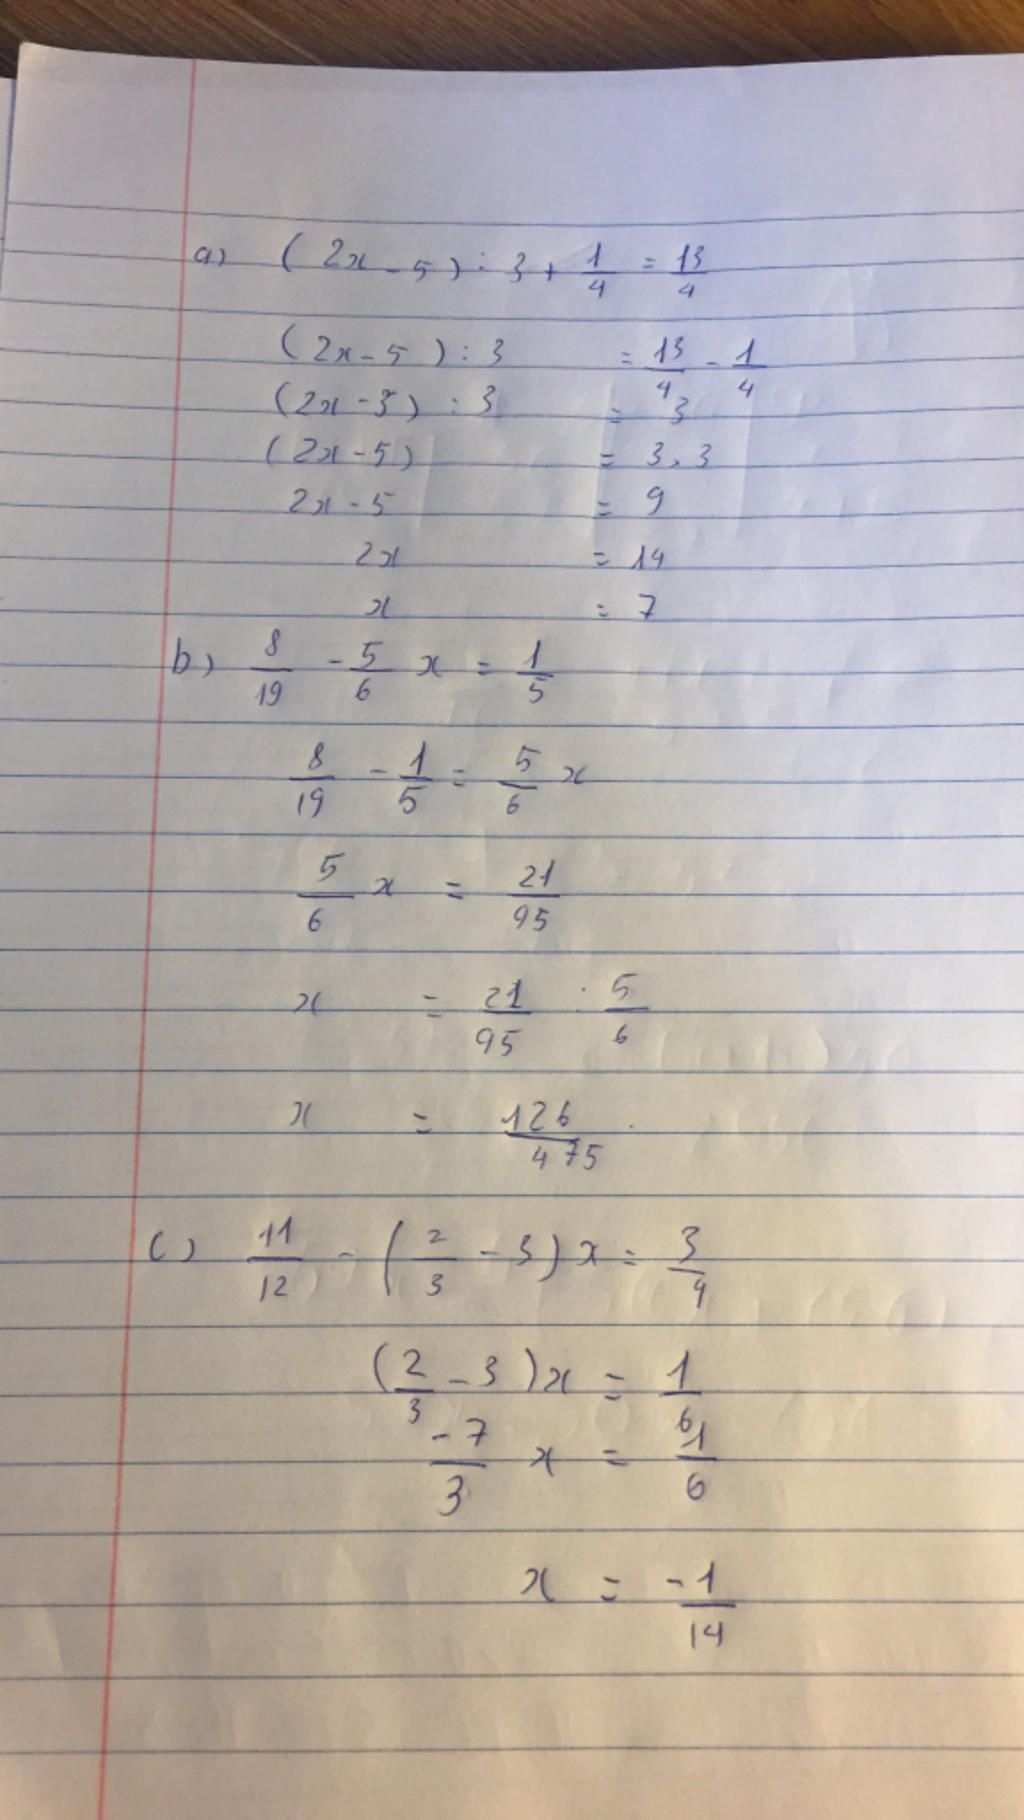 a) (2x - 5) : 3 + 1/4 = 13/4
(2x - 5) : 3 = 13/4 - 1/4
(2x - 5) : 3 = 3
(2x - 5) = 3.3
2x - 5 = 9
2x = 14
x = 7
b) 8/19 - 5/6 x = 1/5
8/19 - 1/5 = 5/6 x
5/6 x = 21/95
x = 21/95 : 5/6
x = 126/475
c) 11/12 - (2/3 - 3) x = 3/4
(2/3 - 3) x = 1/6
-7/3 x = 1/6
x = -1/14